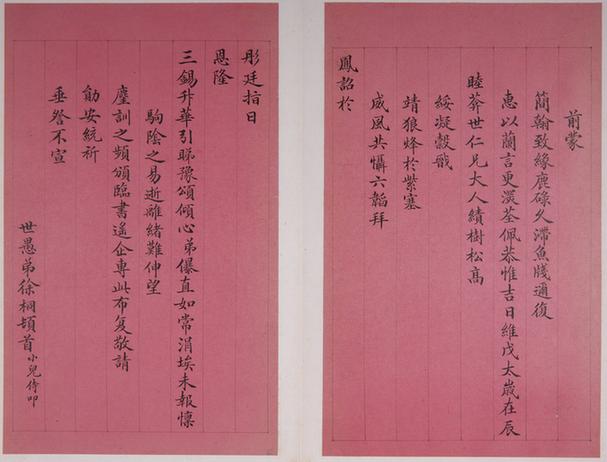 前蒙
簡翰致緣鹿碌久滯魚牋適復
惠以蘭言更濙荃佩恭惟吉日維戊太歲在辰
睦莽世仁兄大人績樹松高
綏凝轂戩
靖狼烽於紫塞
威風共懾六韜拜
鳳詔於
彤廷指日
恩隆
三錫升華引睇豫頌傾心弟儤直如常涓埃未報懍
駒陰之易逝離緒難伸望
麈訓之頻頒臨書遙企專此布复敬請
勛安統祈
垂詧不宣
世愚弟徐桐頓首小兒侍叩